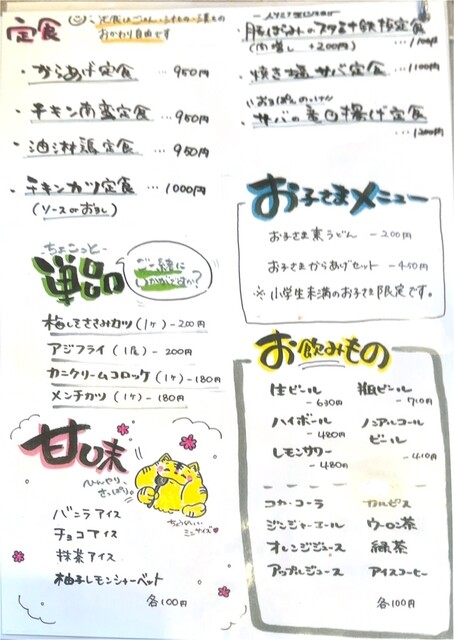 定食
定食はごはん・みそ汁・漬もの
おかわり自由です
・からあげ定食 … 950円
・チキン南蛮定食 … 950円
・油淋鶏定食 … 950円
・チキンカツ定食 … 1000円
(ソース or おろし)
-ちょこっと-
単品
ご一緒に
いかがですか?
梅しそささみカツ(1ヶ)-200円
アジフライ(1尾)-200円
カニクリームコロッケ(1ヶ)-180円
メンチカツ(1ヶ)-180円
甘味
ひんやり、
さっぱり。
ちょうどいい
ミニサイズ
バニラアイス
チョコアイス
抹茶アイス
柚子レモンシャーベット
各100円
豚ばらみのスタミナ鉄板定食
(肉増し +200円) … 1100円
・焼き塩サバ定食 … 1100円
サバの 揚げ定食
… 1200円
お子さまメニュー
お子さま素うどん -200円
お子さまからあげセット -450円
※小学生未満のお子さま限定です。
お飲みもの
生ビール
-630円
瓶ビール
-710円
ハイボール
-480円
ノンアルコール
ビール
-410円
レモンサワー
-480円
コカ・コーラ カルピス
ジンジャーエール ウーロン茶
オレンジジュース 緑茶
アップルジュース アイスコーヒー
各100円